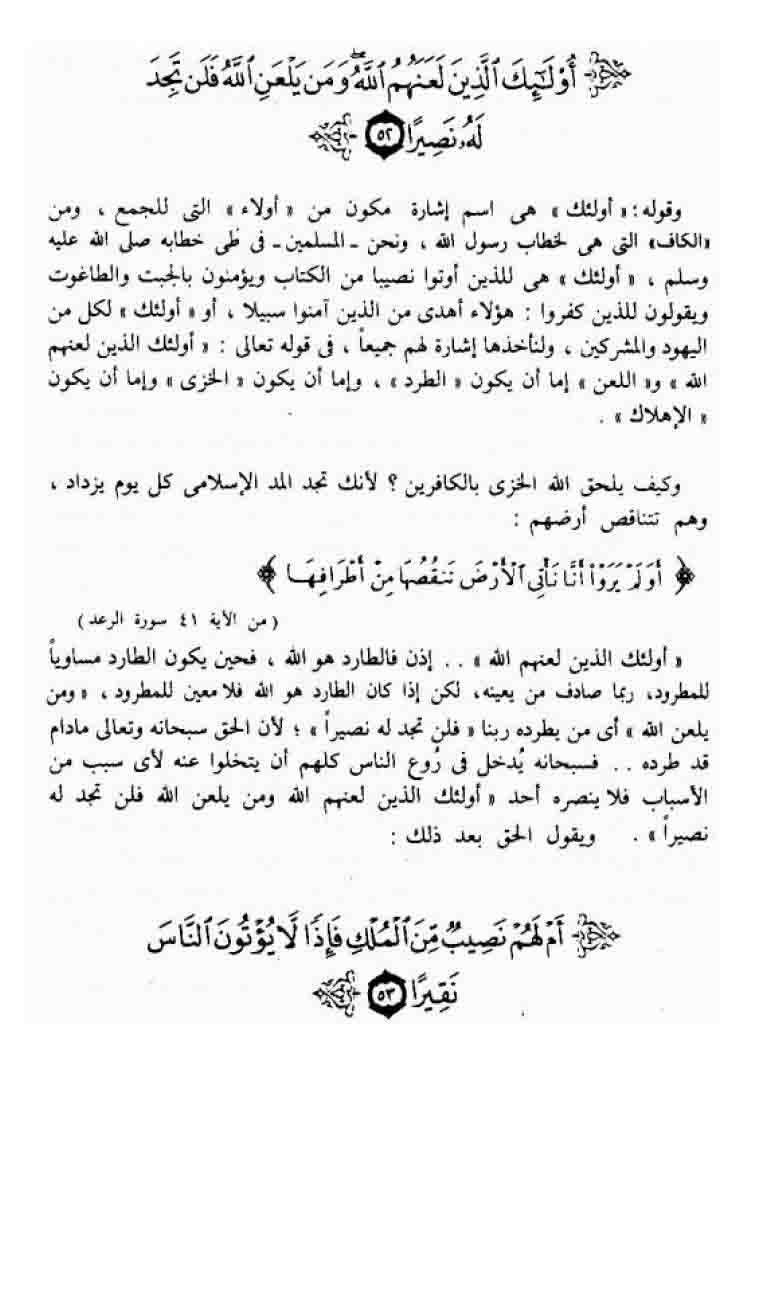 ﴿ أُوْلَٰٓئِكَ ٱلَّذِينَ لَعَنَهُمُ ٱللَّهُۖ وَمَن يَلْعَنِ ٱللَّهُ فَلَن تَجِدَ
لَهُۥ نَصِيرًا ٥٢ ﴾
وقوله : « أولئك » هى اسم إشارة مكون من « أولاء » التى للجمع ، ومن
«الكاف» التى هى لخطاب رسول الله ، ونحن ـ المسلمين ـ فى طى خطابه صلى الله عليه
وسلم ، « أولئك » هى للذين أوتوا نصيبا من الكتاب ويؤمنون بالجبت والطاغوت
ويقولون للذين كفروا : هؤلاء أهدى من الذين آمنوا سبيلا ، أو « أولئك » لكل من
اليهود والمشركين ، ولنأخذها إشارة لهم جميعاً ، فى قوله تعالى : « أولئك الذين لعنهم
الله » و« اللعن » إما أن يكون « الطرد » ، وإما أن يكون « الخزى » وإما أن يكون
« الإهلاك » .
وكيف يلحق الله الخزى بالكافرين ؟ لأنك تجد المد الإسلامى كل يوم يزداد ،
وهم تتناقص أرضهم :
﴿ أَوَلَمْ يَرَوْاْ أَنَّا نَأْتِى ٱلْأَرْضَ نَنقُصُهَا مِنْ أَطْرَافِهَا ﴾
( من الآية ٤١ سورة الرعد )
« أولئك الذين لعنهم الله » . . إذن فالطارد هو الله ، فحين يكون الطارد مساوياً
للمطرود، ربما صادف من يعينه، لكن إذا كان الطارد هو الله فلا معين للمطرود ، « ومن
يلعن الله » أى من يطرده ربنا « فلن تجد له نصيراً » ؛ لأن الحق سبحانه وتعالى مادام
قد طرده . . فسبحانه يُدخل فى رُوع الناس كلهم أن يتخلوا عنه لأى سبب من
الأسباب فلا ينصره أحد « أولئك الذين لعنهم الله ومن يلعن الله فلن تجد له
نصيراً » . ويقول الحق بعد ذلك :
﴿ أَمْ لَهُمْ نَصِيبٌ مِّنَ ٱلْمُلْكِ فَإِذًا لَّا يُؤْتُونَ ٱلنَّاسَ
نَقِيرًا ٥٣ ﴾